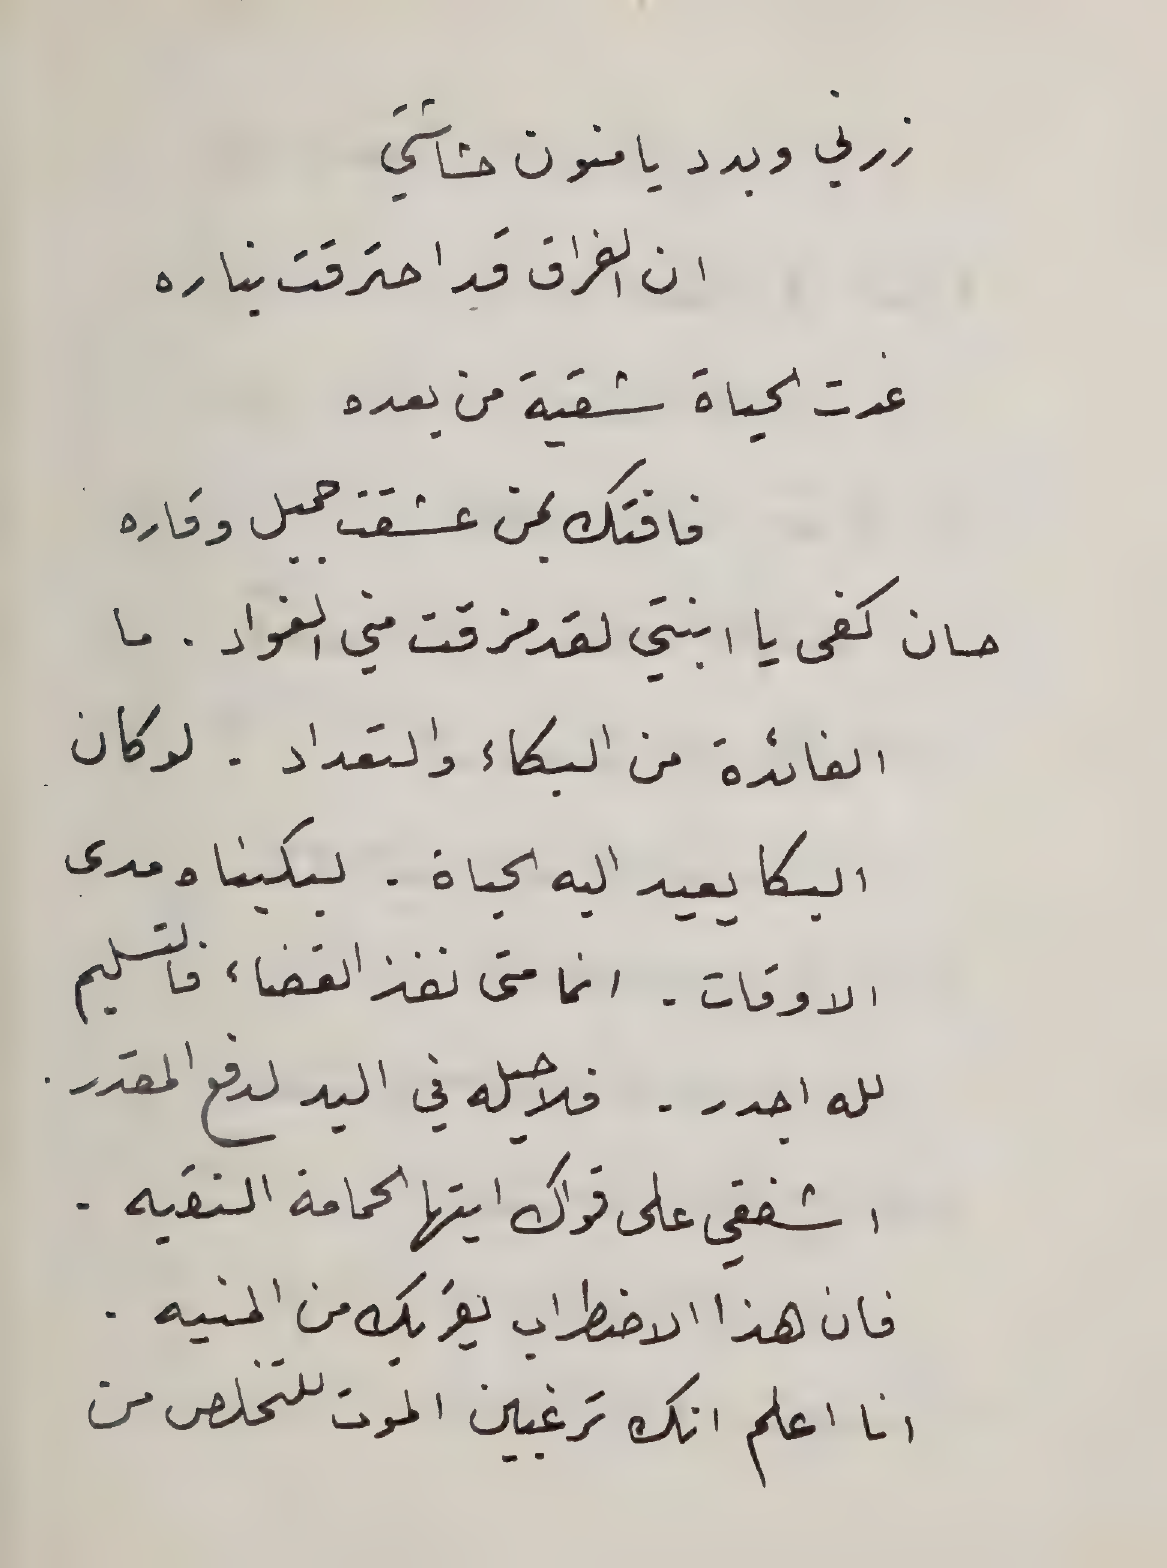 زرني وبدد يا منون حشاشتي
ان الفراق قد احترقت بناره
غدت الحياة شقية من بعده
فافتك بمن عشقت جميل وقاره
حسان كفى يا ابنتي لقد مزقت مني الفواد . ما
الفائدة من البكاء والتعداد . لو كان
البكا يعيد اليه الحياة . لبكيناه مدى
الاوقات . انما متى نفذ القضاء فالتسليم
لله اجدر . فلا حيله في اليد لدفع المقدر .
اشفقي على قواك ايتها الحمامة النقيه .
فان هذا الاضطراب يقربك من المنيه .
انا اعلم انك ترغبين الموت للتخلص من